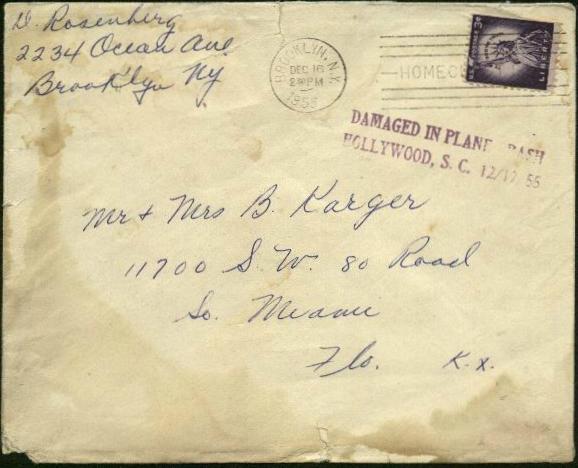 D. Rosenberg
2234 Ocean Ave
Brooklyn Ny
BROOKLYN, N.Y.
DEC 16
2 PM
1955
3¢
LIBERTY
DAMAGED IN PLANE
HOLLYWOOD, S. C. 12/17 55
Mr & Mrs B. Karger
11700 S. W. 80 Road
So. Miami
Fla. K.x.